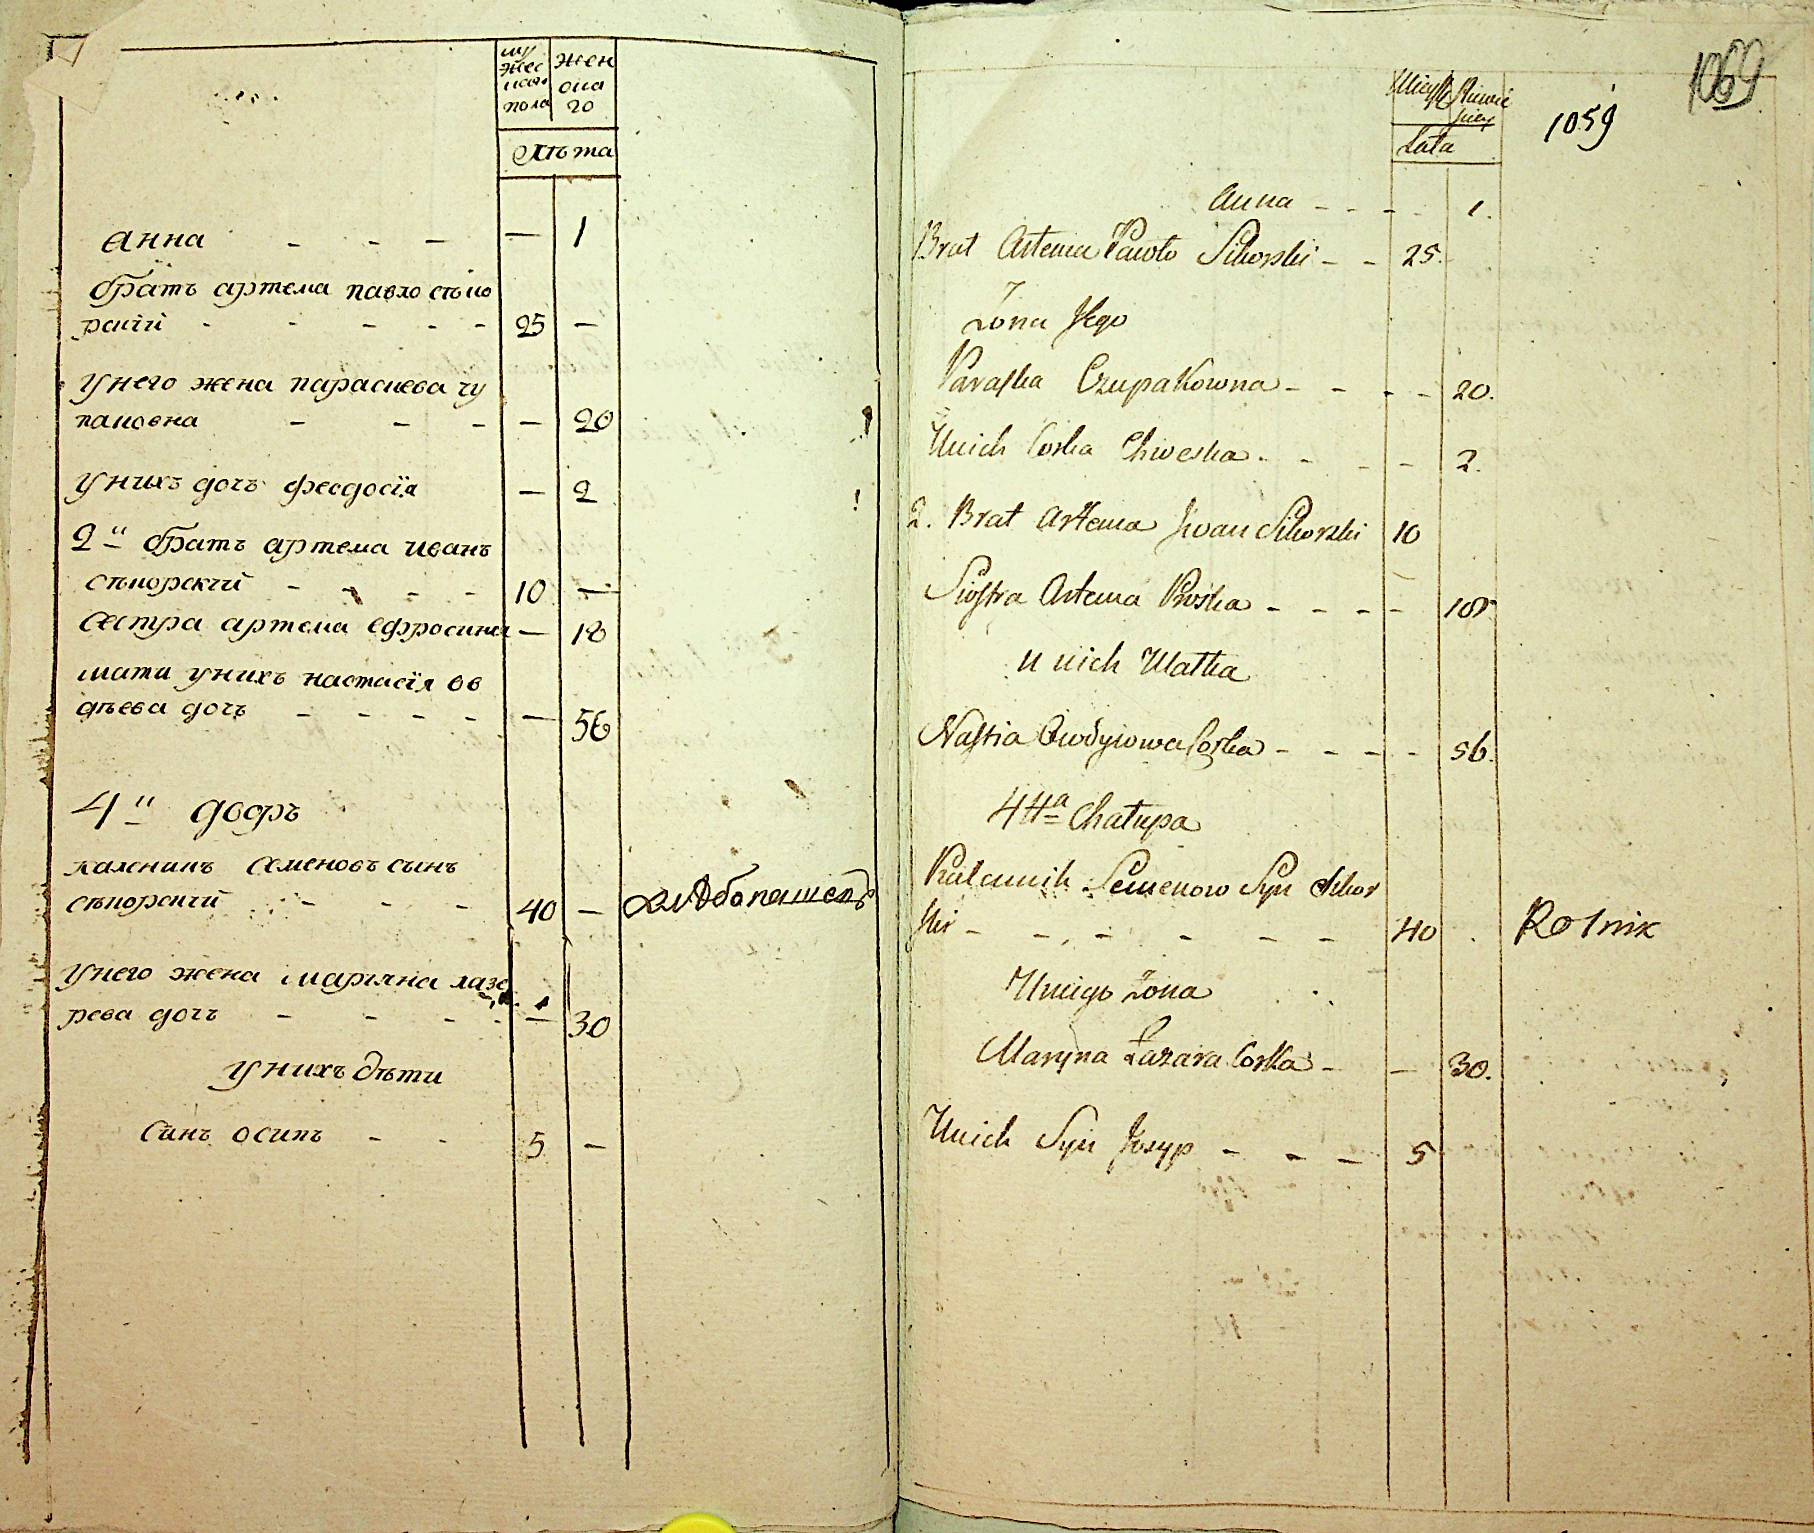 му
жес
каго
пола
жен
ска
го
Лѣта
анна - - - — 1
братъ артема павло сѣко
рский - - - - - 25 —
у него жена параскева чу
паковна - - - — 20
у нихъ дочь феодосїя — 2
2й братъ артема иванъ
сѣкорский - - - - 10 —
сестра артема ефросиния — 18
мати у нихъ настасїя ов
дѣева дочь - - - - — 56
4й дворъ
каленикъ семеновъ сынъ
сѣкорский - - - 40 — хлѣбопашецъ
у него жена марияна лаза
рева дочь - - - - — 30
у нихъ дѣти
синъ осипъ - - 5 —
1069
1059
Męsk
Niewie
sciey
Lata
Anna - - - - 1.
Brat Artema Pawło Sikorski - - 25.
Żona Jego
Paraska Czupakowna - - - - 20.
U nich Corka Chweska - - - - 2.
2. Brat Artema Jwan Sikorski 10
Siostra Artema Proska - - - - 18
U nich Matka
Nastia Owdyiowa Corka - - - - 56.
4ta Chałupa
Kalennik Semenow Syn Sikor
ski - - - - - - 40 . Rolnik
U niego Żona
Maryna Łazara Corka - — 30.
U nich Syn Josyp - - — 5